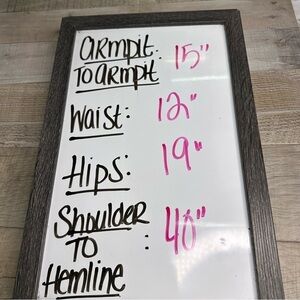 Armpit: 15"
To Armpit
Waist: 12"
Hips: 19"
Shoulder
To : 40"
Hemline